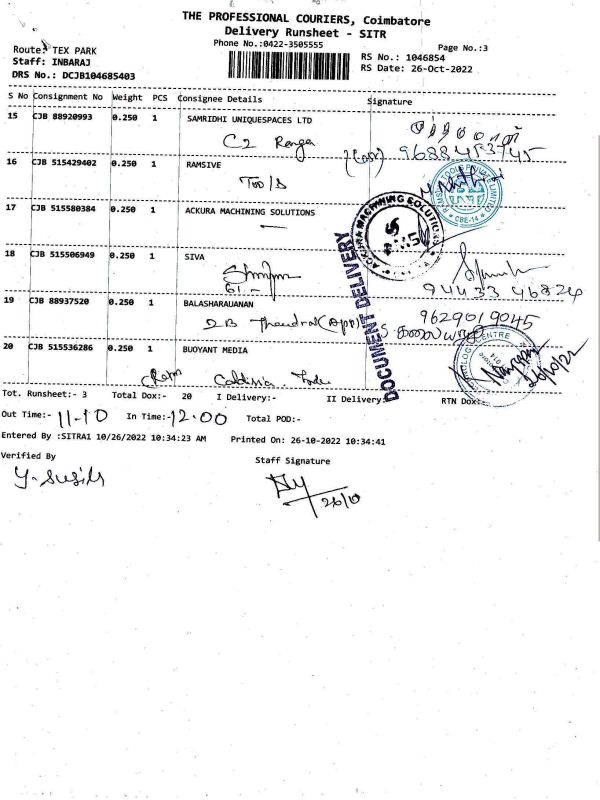 THE PROFESSIONAL COURIERS, Coimbatore
Delivery Runsheet - SITR
Phone No.:0422-3505555
Page No.:3
Route: TEX PARK
RS No.: 1046854
Staff: INBARAJ
RS Date: 26-Oct-2022
DRS No.: DCJB104685403
S No Consignment No Weight PCS Consignee Details Signature
15 CJB 88920993 0.250 1 SAMRIDHI UNIQUESPACES LTD
C2 Ranga 9688453745
16 CJB 515429402 0.250 1 RAMSIVE
Tools
CBE-14
17 CJB 515580384 0.250 1 ACKURA MACHINING SOLUTIONS
ACKURA MACHINING SOLUTIONS
DOCUMENT DELIVERY
18 CJB 515506949 0.250 1 SIVA
61 -
94433 46824
19 CJB 88937520 0.250 1 BALASHARAUANAN
2B Thendral (App) 9629019045
20 CJB 515536286 0.250 1 BUOYANT MEDIA
26/10/22
Tot. Runsheet:- 3 Total Dox:- 20 I Delivery:- II Delivery:- RTN Dox:-
Out Time:- 11-10 In Time:-12.00 Total POD:-
Entered By :SITRA1 10/26/2022 10:34:23 AM Printed On: 26-10-2022 10:34:41
Verified By
Staff Signature
26/10